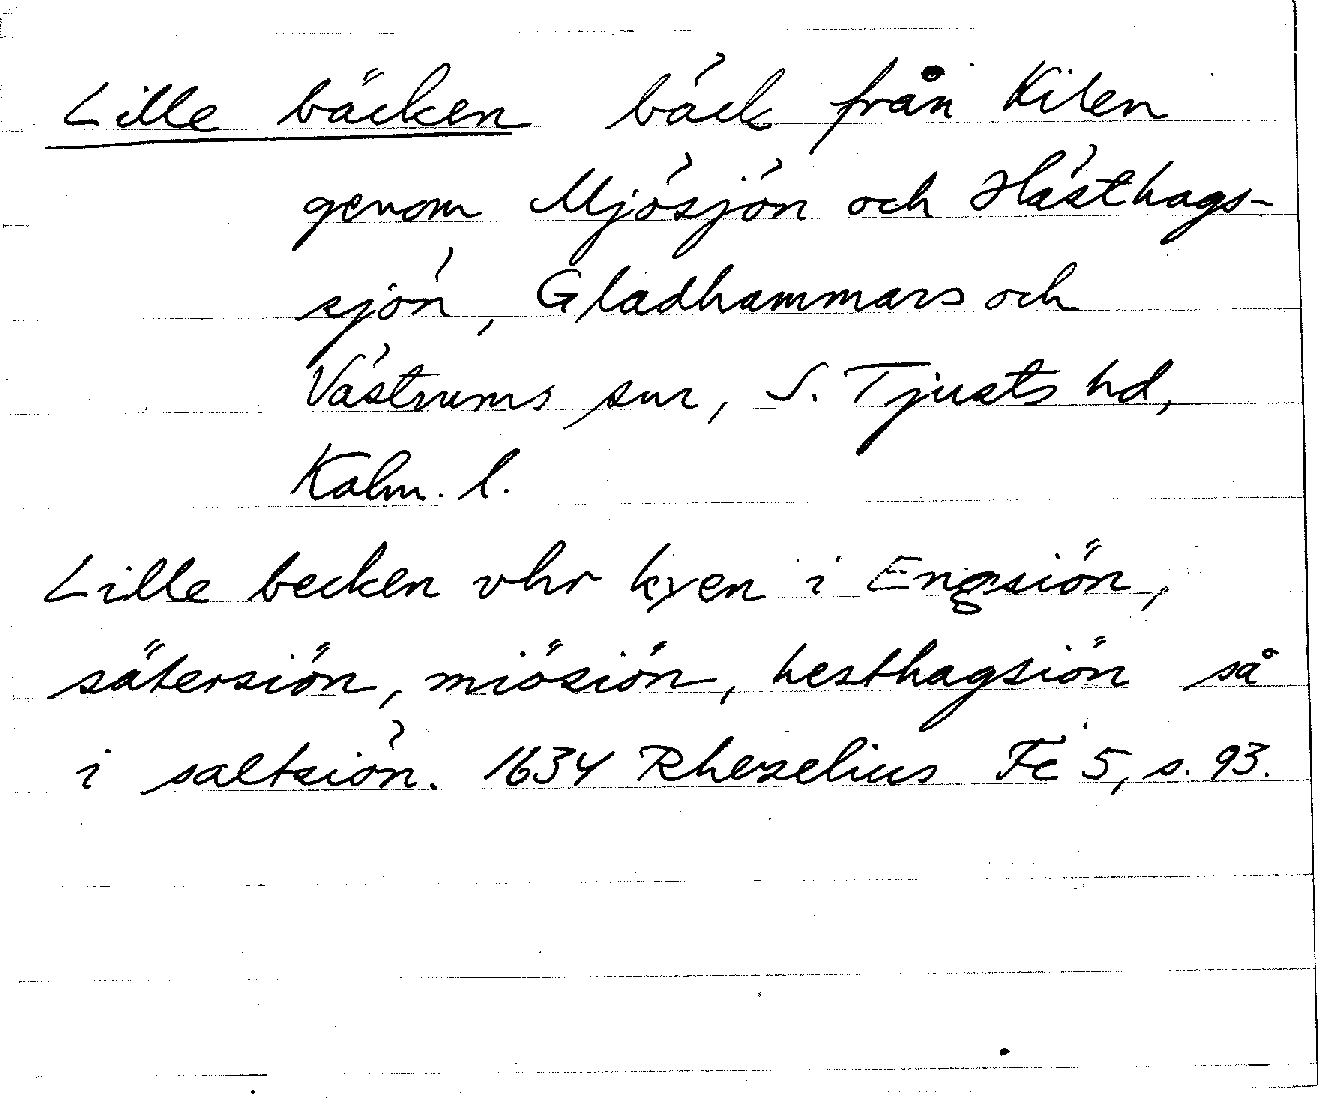 Lille bäcken bäck från Kilen
genom Mjösjön och Hästhags-
sjön, Gladhammars och
Västrums snr, S. Tjusts hd,
Kalm. l.
Lille becken vhr kyen i Engsiön,
sätersiön, miösiön, hesthagsiön så
i saltsiön. 1634 Rhezelius Fc 5, s. 93.